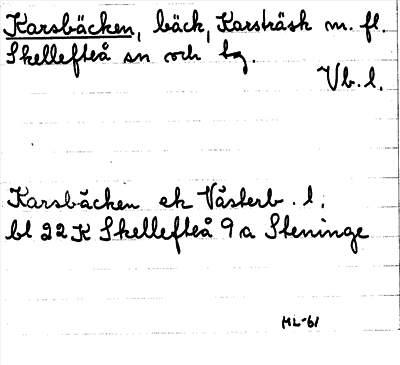 Karsbäcken, bäck, Karsträsk m. fl.
Skellefteå sn och tg.
Vb. l.
Karsbäcken ek Västerb. l.
bl 22 K Skellefteå 9 a Steninge
ML-61